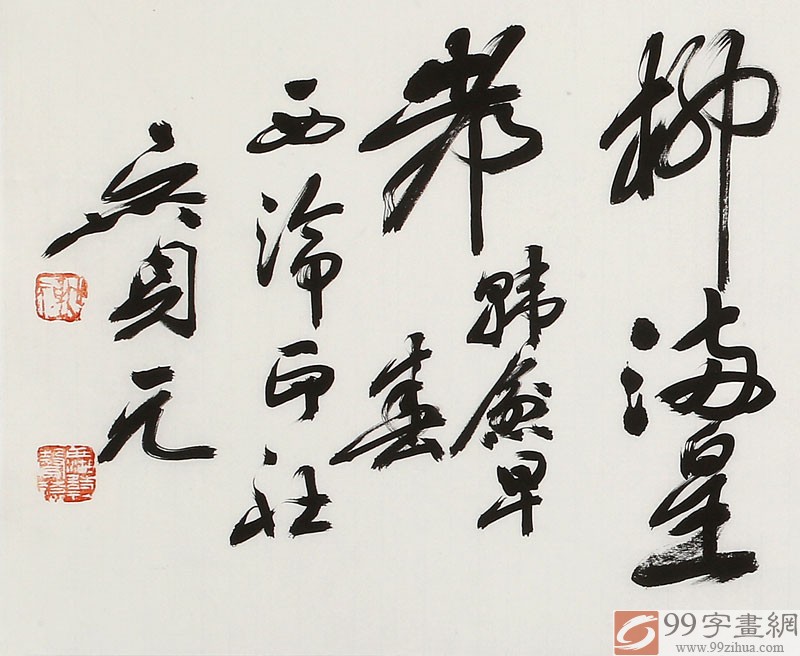 柳滿皇
都
韓愈早
春
西泠印社
吴身元
99字畫網
www.99zihua.com